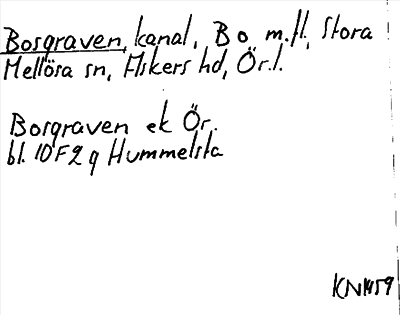 Bosgraven, kanal, Bo m.fl., Stora
Mellösa sn, Askers hd, Ör.l.
Borgraven ek Ör.
bl. 10F2g Hummelsta